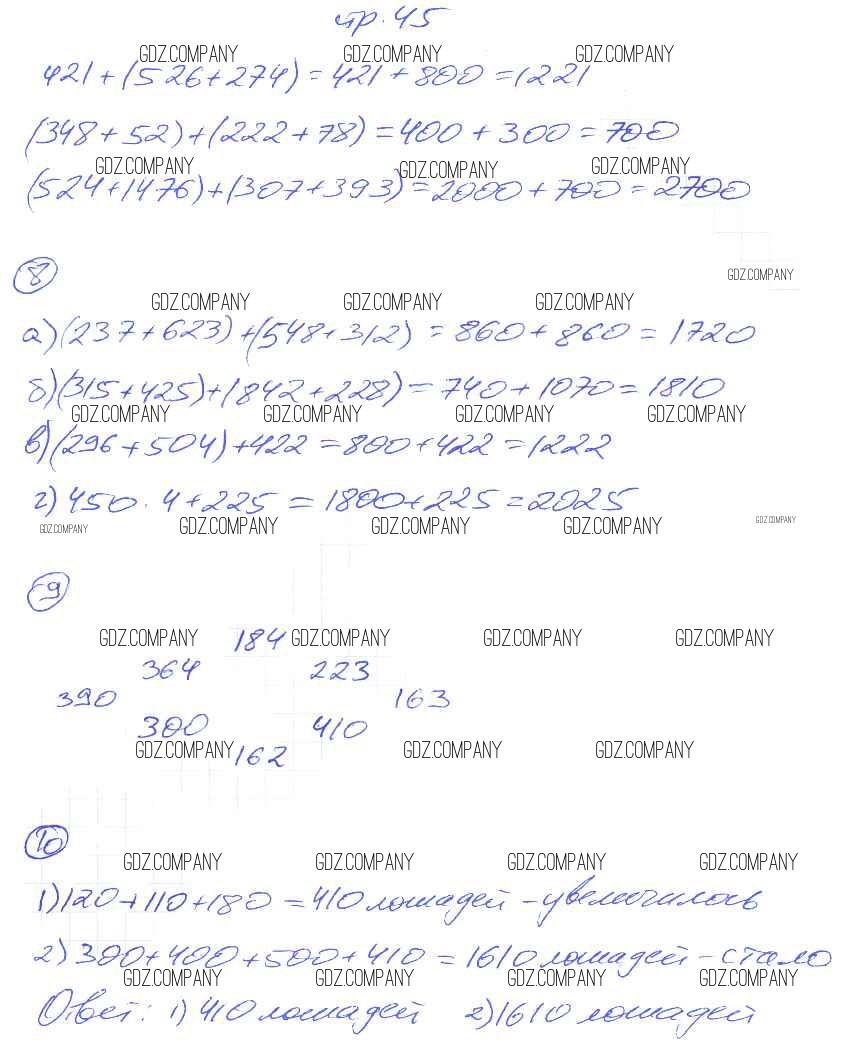 стр. 45
GDZ.COMPANY GDZ.COMPANY GDZ.COMPANY
421 + (526 + 274) = 421 + 800 = 1221
(348 + 52) + (222 + 78) = 400 + 300 = 700
GDZ.COMPANY GDZ.COMPANY GDZ.COMPANY
(524 + 1476) + (307 + 393) = 2000 + 700 = 2700
GDZ.COMPANY
8
GDZ.COMPANY GDZ.COMPANY GDZ.COMPANY
а) (237 + 623) + (548 + 312) = 860 + 860 = 1720
б) (315 + 425) + (842 + 228) = 740 + 1070 = 1810
GDZ.COMPANY GDZ.COMPANY GDZ.COMPANY GDZ.COMPANY
в) (296 + 504) + 422 = 800 + 422 = 1222
г) 450 · 4 + 225 = 1800 + 225 = 2025
GDZ.COMPANY GDZ.COMPANY GDZ.COMPANY GDZ.COMPANY GDZ.COMPANY
9
GDZ.COMPANY 184 GDZ.COMPANY GDZ.COMPANY GDZ.COMPANY
364 223
390 163
300 410
GDZ.COMPANY 162 GDZ.COMPANY GDZ.COMPANY
10
GDZ.COMPANY GDZ.COMPANY GDZ.COMPANY GDZ.COMPANY
1) 120 + 110 + 180 = 410 лошадей - увеличилось
2) 300 + 400 + 500 + 410 = 1610 лошадей - стало
GDZ.COMPANY GDZ.COMPANY GDZ.COMPANY GDZ.COMPANY
Ответ: 1) 410 лошадей 2) 1610 лошадей